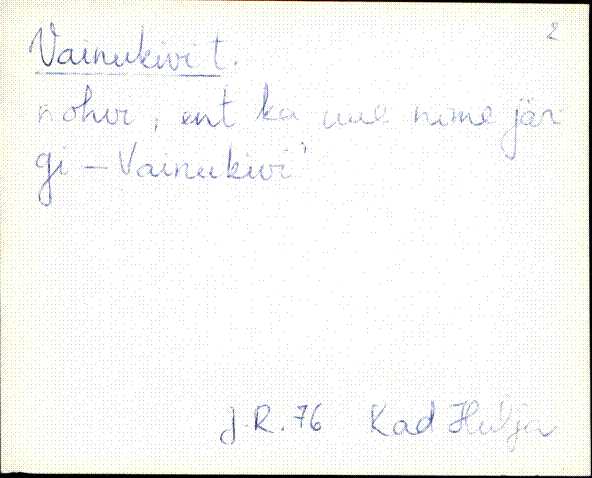 2
Vainukivi t.
nohvr, ent ka uue nime jär-
gi – Vainukivi"
J.R. 76 Kad Hulja